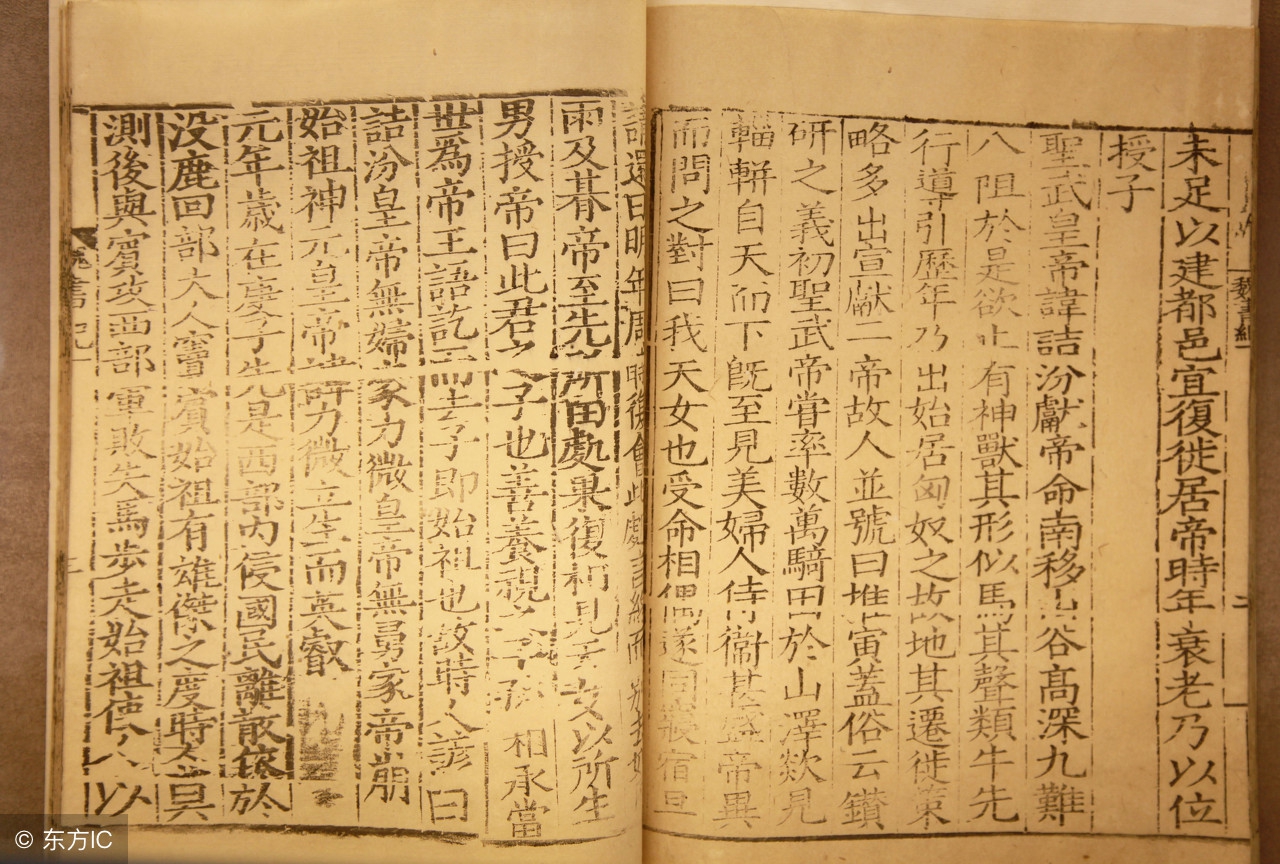 未足以建都邑宜復徙居帝時年衰老乃以位
授子
聖武皇帝諱詰汾獻帝命南移山谷高深九難
八阻於是欲止有神獸其形似馬其聲類牛先
行導引歷年乃出始居匈奴之故地其遷徙策
略多出宣獻二帝故人並號曰推寅蓋俗云鑽
研之義初聖武帝嘗率數萬騎田於山澤欻見
輜軿自天而下旣至見美婦人侍衛甚盛帝異
而問之對曰我天女也受命相偶遂同寢宿旦
請還曰明年周時復會此處言終而別
雨及朞帝至先所田處果復相見天女以所生
男授帝曰此君之子也善養視之子孫相承當
世爲帝王語訖而去子即始祖也故時人諺曰
詰汾皇帝無婦家力微皇帝無舅家帝崩
始祖神元皇帝諱力微立生而英叡
元年歲在庚子先是西部內侵國民離散依於
没鹿回部大人竇賓始祖有雄傑之度時人莫
測後與賓攻西部軍敗失馬步走始祖使人以
魏書紀一
二
魏書紀一
© 东方IC